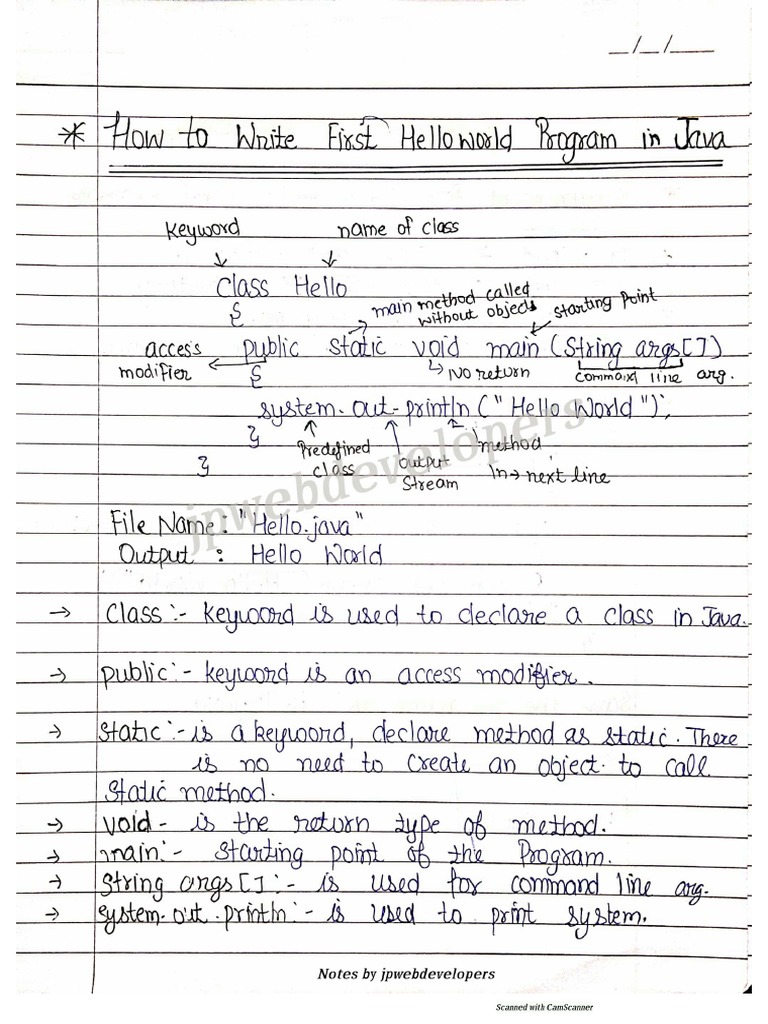 _/_/___
* How to Write First Helloworld Program in Java
keyword name of class
class Hello
{
main method called without objects
starting point
access modifier
public static void main (String args[])
No return
command line arg.
{
system.out.println ("Hello World");
}
Predefined class
output stream
method
ln → next line
}
jpwebdevelopers
File Name: "Hello.java"
Output : Hello World
→ Class :- keyword is used to declare a class in Java.
→ public :- keyword is an access modifier.
→ static :- is a keyword, declare method as static. There
is no need to create an object to call
static method.
→ void - is the return type of method.
→ main :- starting point of the Program.
→ String args[] :- is used for command line arg.
→ system.out.println :- is used to print system.
Notes by jpwebdevelopers
Scanned with CamScanner